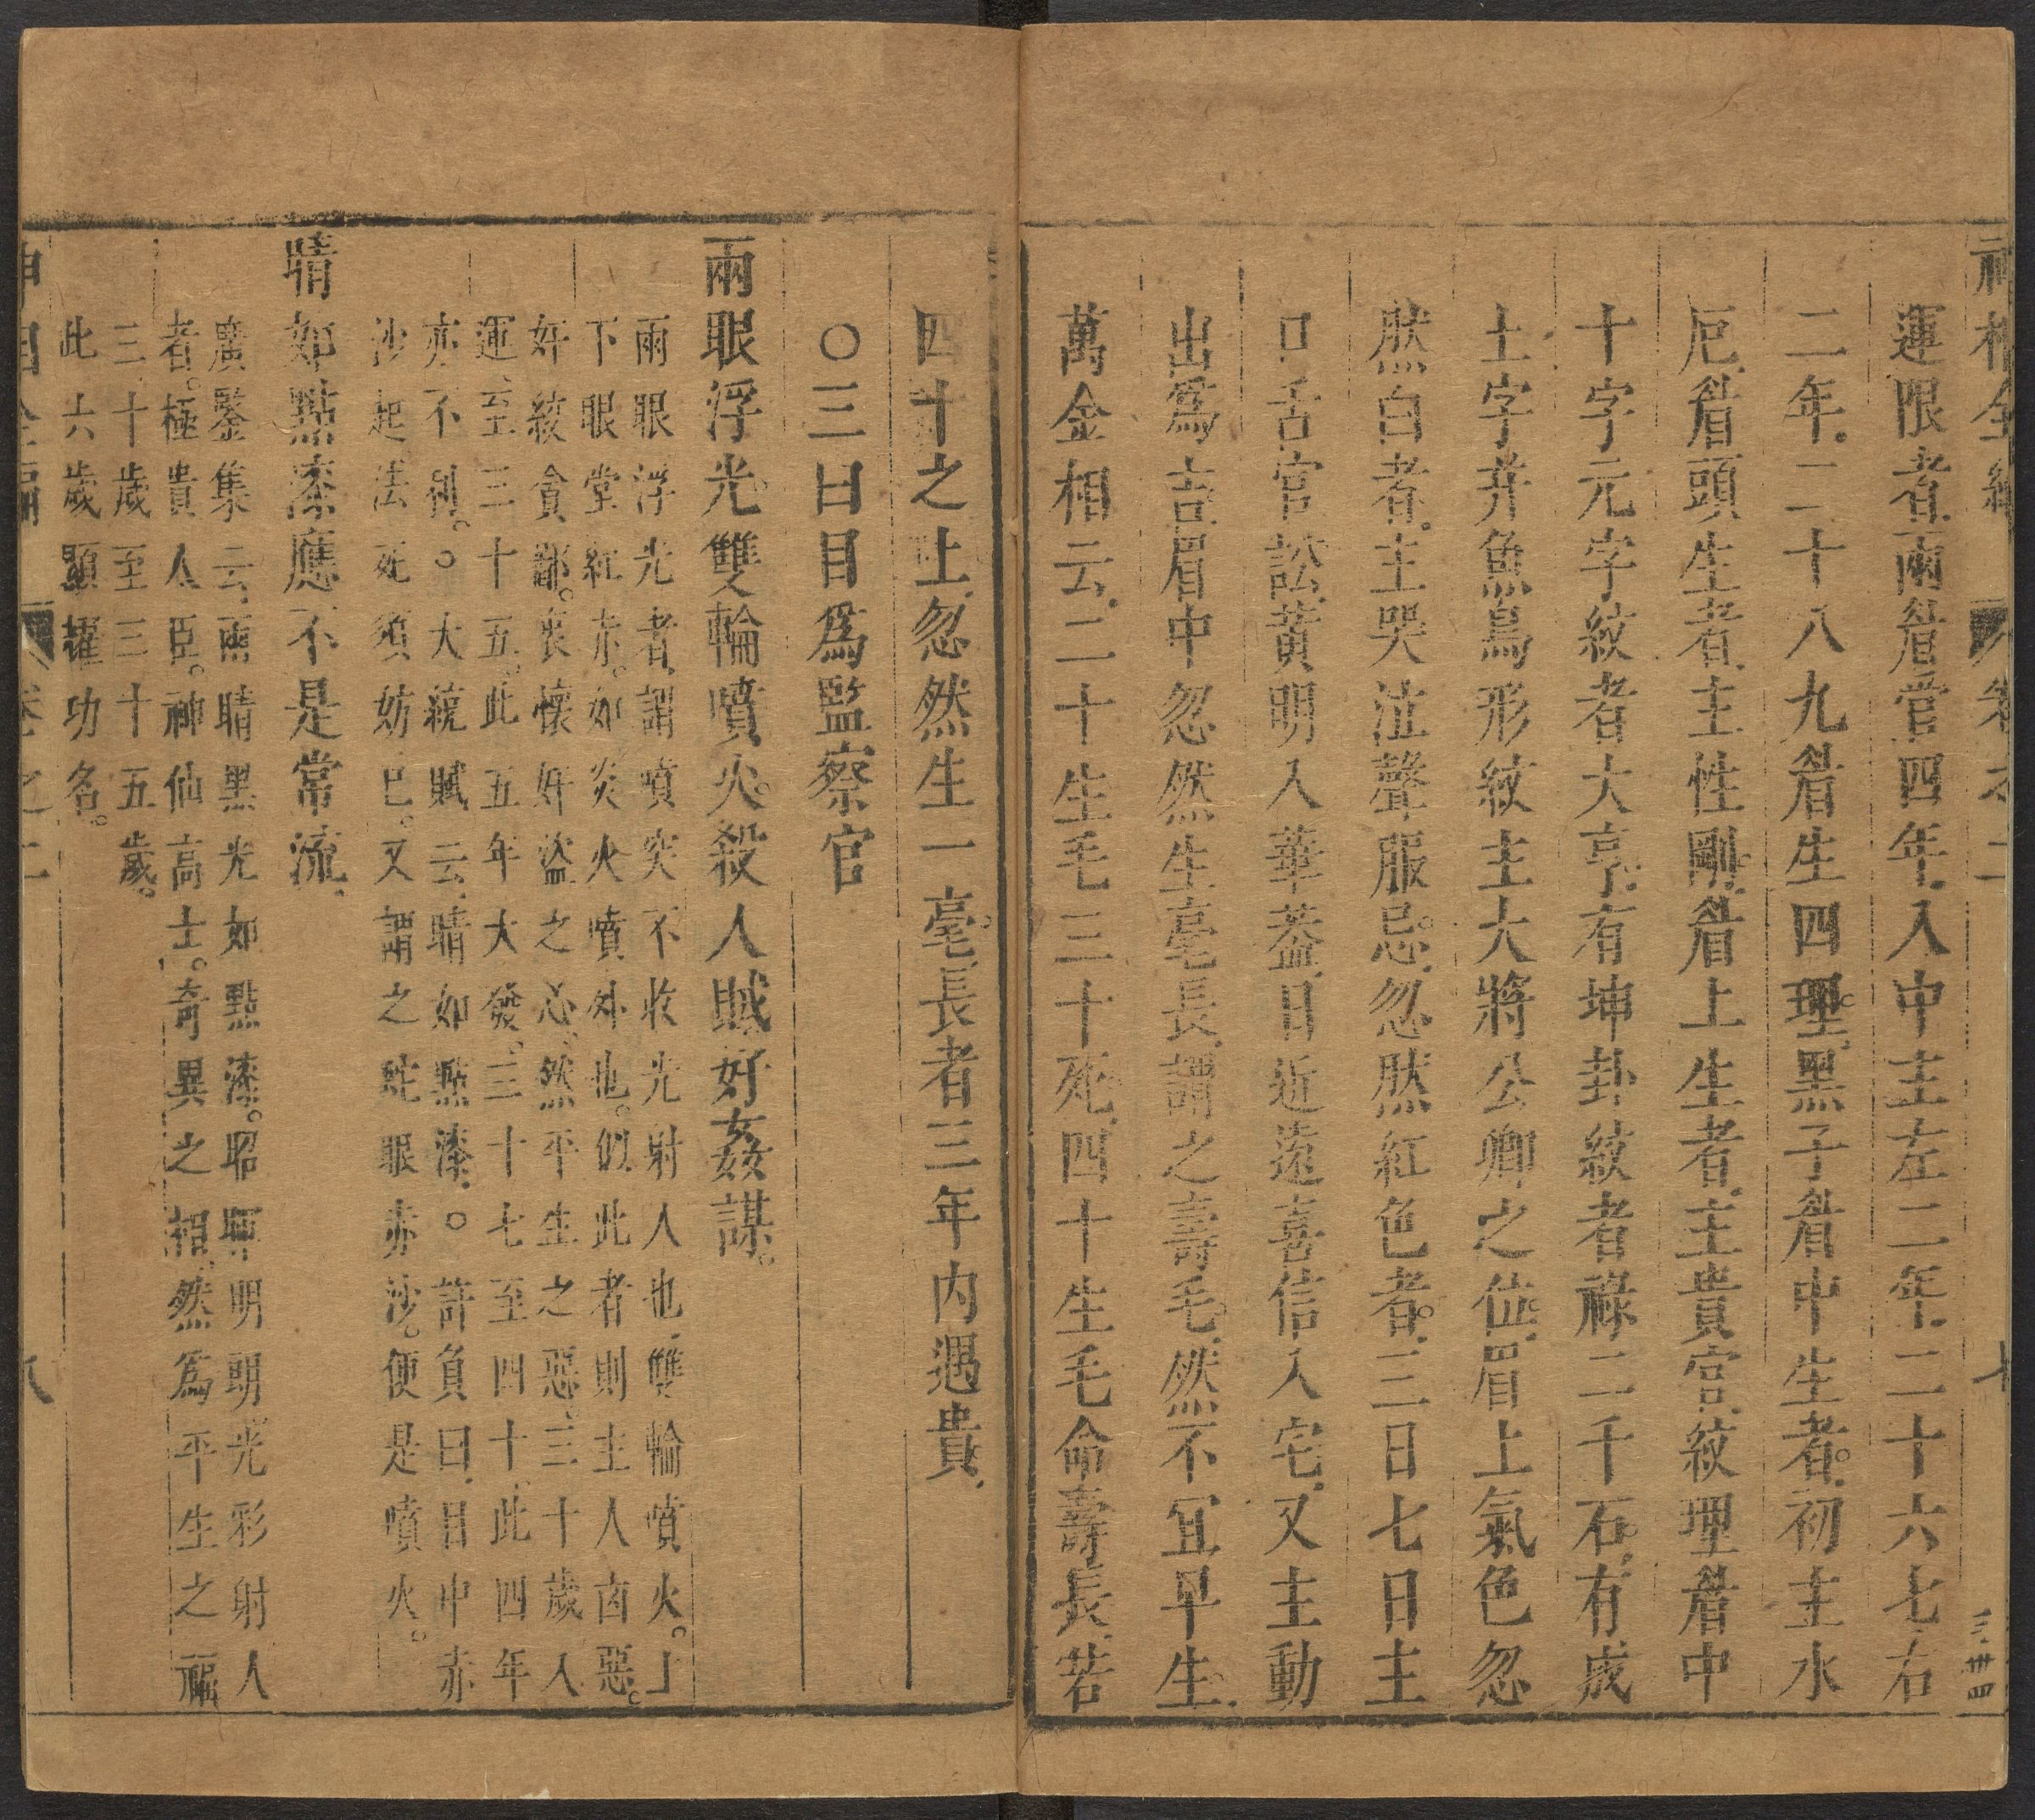 運限者兩眉管四年入中主左二年二十六七右
二年二十八九眉生四理黑子眉中生者初主水
厄眉頭生者主性剛眉上生者主貴宮紋理眉中
十字元字紋者大亨有坤卦紋者祿二千石有成
土字井魚鳥形紋主大將公卿之位眉上氣色忽
然白者主哭泣聲服忌忽然紅色者三日七日主
口舌官訟黃明入華葢目近遠喜信入宅又主動
出爲吉眉中忽然生毫長謂之壽毛然不宜早生
萬金相云二十生毛三十死四十生毛命壽長若
四十之上忽然生一毫長者三年內遇貴
〇三曰目爲監察官
兩眼浮光雙輪噴火殺人賊好姦謀
兩眼浮光者謂噴突不收光射人也雙輪噴火上
下眼堂紅赤如炎火噴外也似此者則主人凶惡
奸紋貪鄙喪懷奸盜之心然平生之惡三十歲入
運至三十五此五年大發三十七至四十此四年
亦不利〇大統賦云睛如點漆〇許負曰目中赤
沙起法死須妨己又謂之蛇眼赤沙便是噴火
睛如點漆應不是常流
廣鑒集云兩睛黑光如點漆昭暉明朗光彩射人
者極貴人臣神仙高士奇異之相然爲平生之福
三十歲至三十五歲
此六歲顯擢功名
卷之二
八